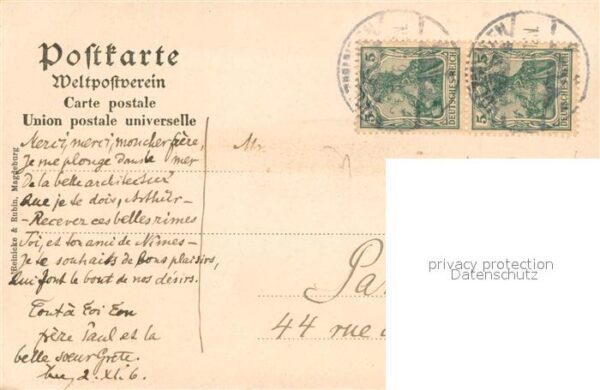 Postkarte
Weltpostverein
Carte postale
Union postale universelle
Merci, merci, mon cher frère,
Je me plonge dans le mer
De la belle architectur
Que je te dois, Arthur -
- Recevez ces belles rimes
Toi, et ton ami de Nîmes -
Je te souhaits de bons plaisirs,
Qui font le bout de nos désirs.
Tout à toi ton
frère Paul et la
belle sœur Grete.
2. XI. 6.
Heinicke & Rubin, Magdeburg
5 5
DEUTSCHES REICH
5 5
DEUTSCHES REICH
Mr.
Pa
44 rue
privacy protection
Datenschutz